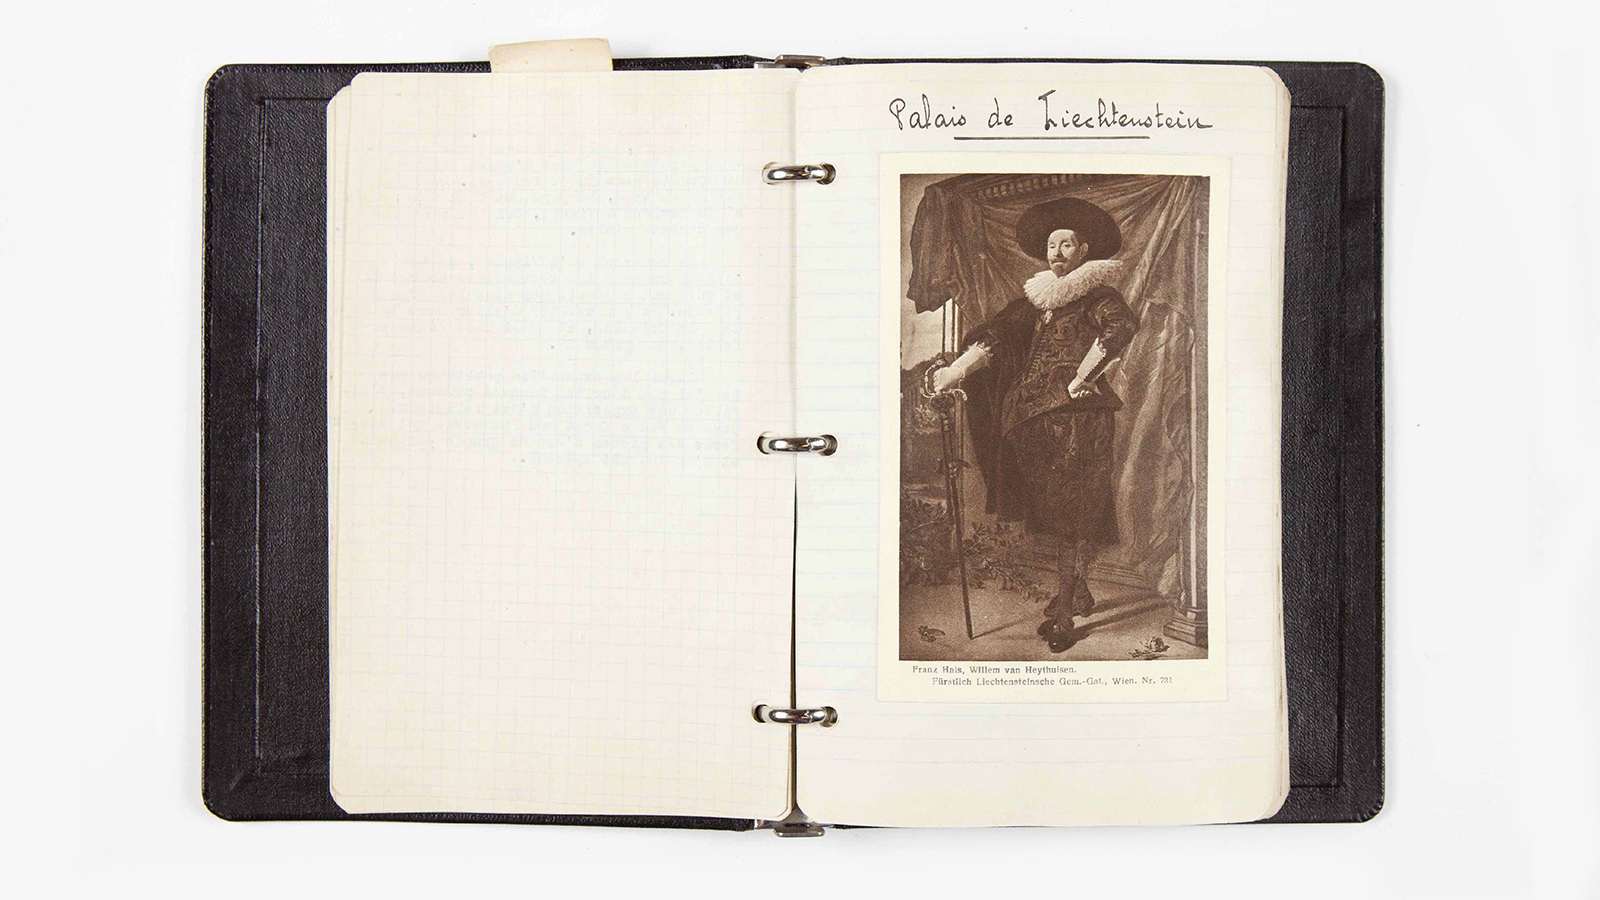 Palais de Liechtenstein
Franz Hals, Willem van Heythuisen.
Fürstlich Liechtensteinsche Gem.-Gal., Wien. Nr. 731